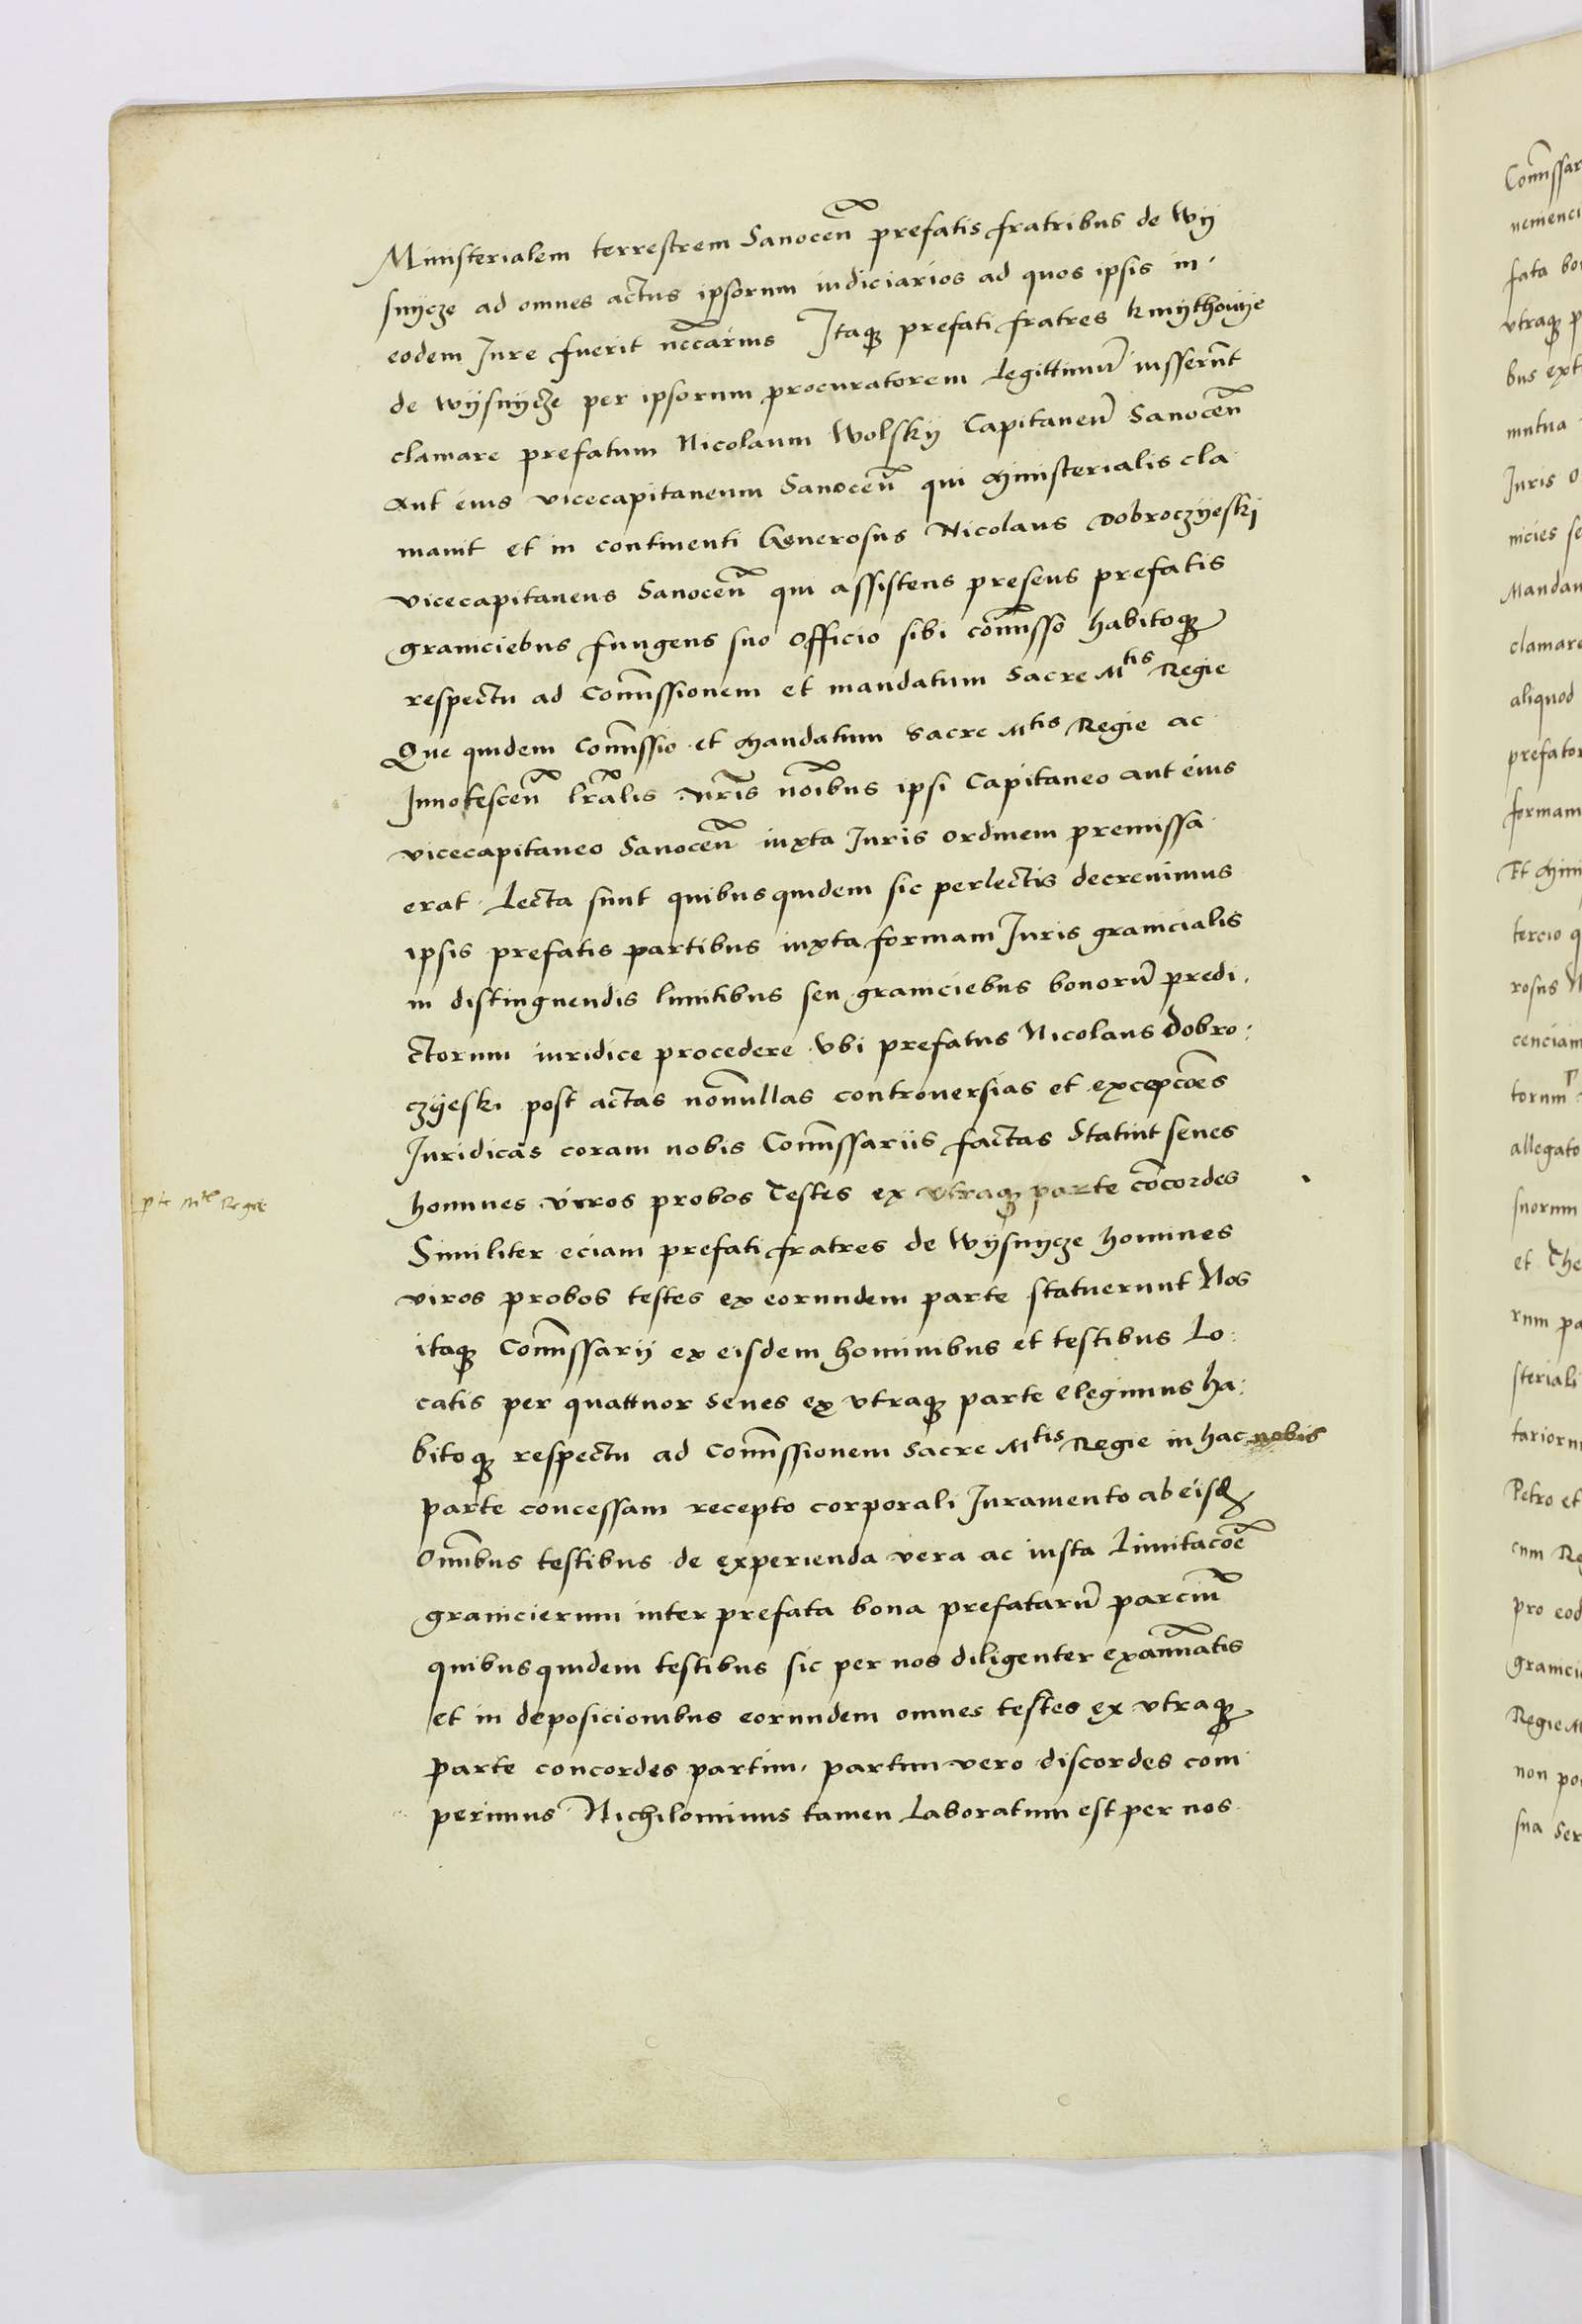 Ministerialem terrestrem Sanoceñ prefatis fratribus de Wÿ
snÿcze ad omnes actus ipsorum iudiciarios ad quos ipsis in
eodem Jure fuerit nēcārius Itaqꝫ prefati fratres kmÿthowÿe
de wÿsnÿcze per ipsorum procuratorem Legittimū iusserūt
clamare prefatum Nicolaum Wolskÿ Capitaneū Sanoceñ
Aut eius vicecapitaneum Sanoceñ qui Ministerialis cla
mavit et in continenti Generosus Nicolaus Dobroczÿeskj
vicecapitaneus Sanoceñ qui assistens presens prefatis
graniciebus fungens suo officio sibi com̄isso habitoqꝫ
respectu ad com̄issionem et mandatum Sacre Mtis Regie
Que quidem Com̄issio et Mandatum Sacre Mtis Regie ac
Innotesceñ lrālis nrīs noībus ipsi Capitaneo aut eius
vicecapitaneo Sanoceñ iuxta Juris ordinem premissa
erat Lecta sunt quibusquidem sic perlectis decrevimus
ipsis prefatis partibus iuxta formam Juris granicialis
in distinguendis limitibus seu graniciebus bonorū predi
ctorum iuridice procedere vbi prefatus Nicolaus Dobro:
czÿeski post actas nonnullas controversias et excepcōes
Juridicas coram nobis Com̄issariis factas Statuit senes
homines viros probos Testes ex vtraqꝫ parte cōcordes
pte Mte Regie
Similiter eciam prefati fratres de Wÿsnÿcze homines
viros probos testes ex eorundem parte statuerunt Nos
itaqꝫ Com̄issarij ex eisdem hominibus et testibus Lo:
catis per quattuor senes ex vtraqꝫ parte elegimus ha:
bitoqꝫ respectu ad Com̄issionem Sacre Mtis Regie in hac nobis
parte concessam recepto corporali Juramento ab eisd
Omībus testibus de experienda vera ac iusta Limitacōē
granicierum inter prefata bona prefatarū parciū
quibusquidem testibus sic per nos diligenter examīatis
et in deposicionibus eorundem omnes testes ex vtraqꝫ
parte concordes partim, partim vero discordes com
perimus Nichilominus tamen Laboratum est per nos
Com̄issar
fata bo
vtraqꝫ p
bus ext
mutua
Juris o
nicies se
Mandan
clamare
aliquod
prefator
formam
Et Mini
tercio q
rosus N
cenciam
torum
allegato
suorum
et The
rum pa
steriali
tariorn
Petro et
cum Re
pro eod
granici
Regie M
non po
sua Ser